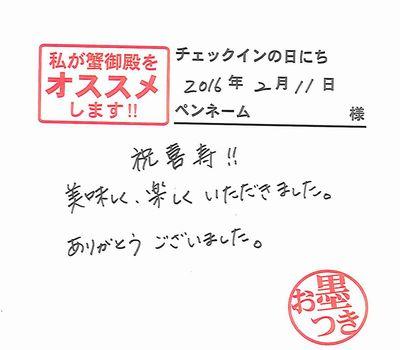 私が蟹御殿を
オススメ
します!!
チェックインの日にち
2016年 2月 11日
ペンネーム 様
祝喜寿!!
美味しく、楽しくいただきました。
ありがとうございました。
お墨つき